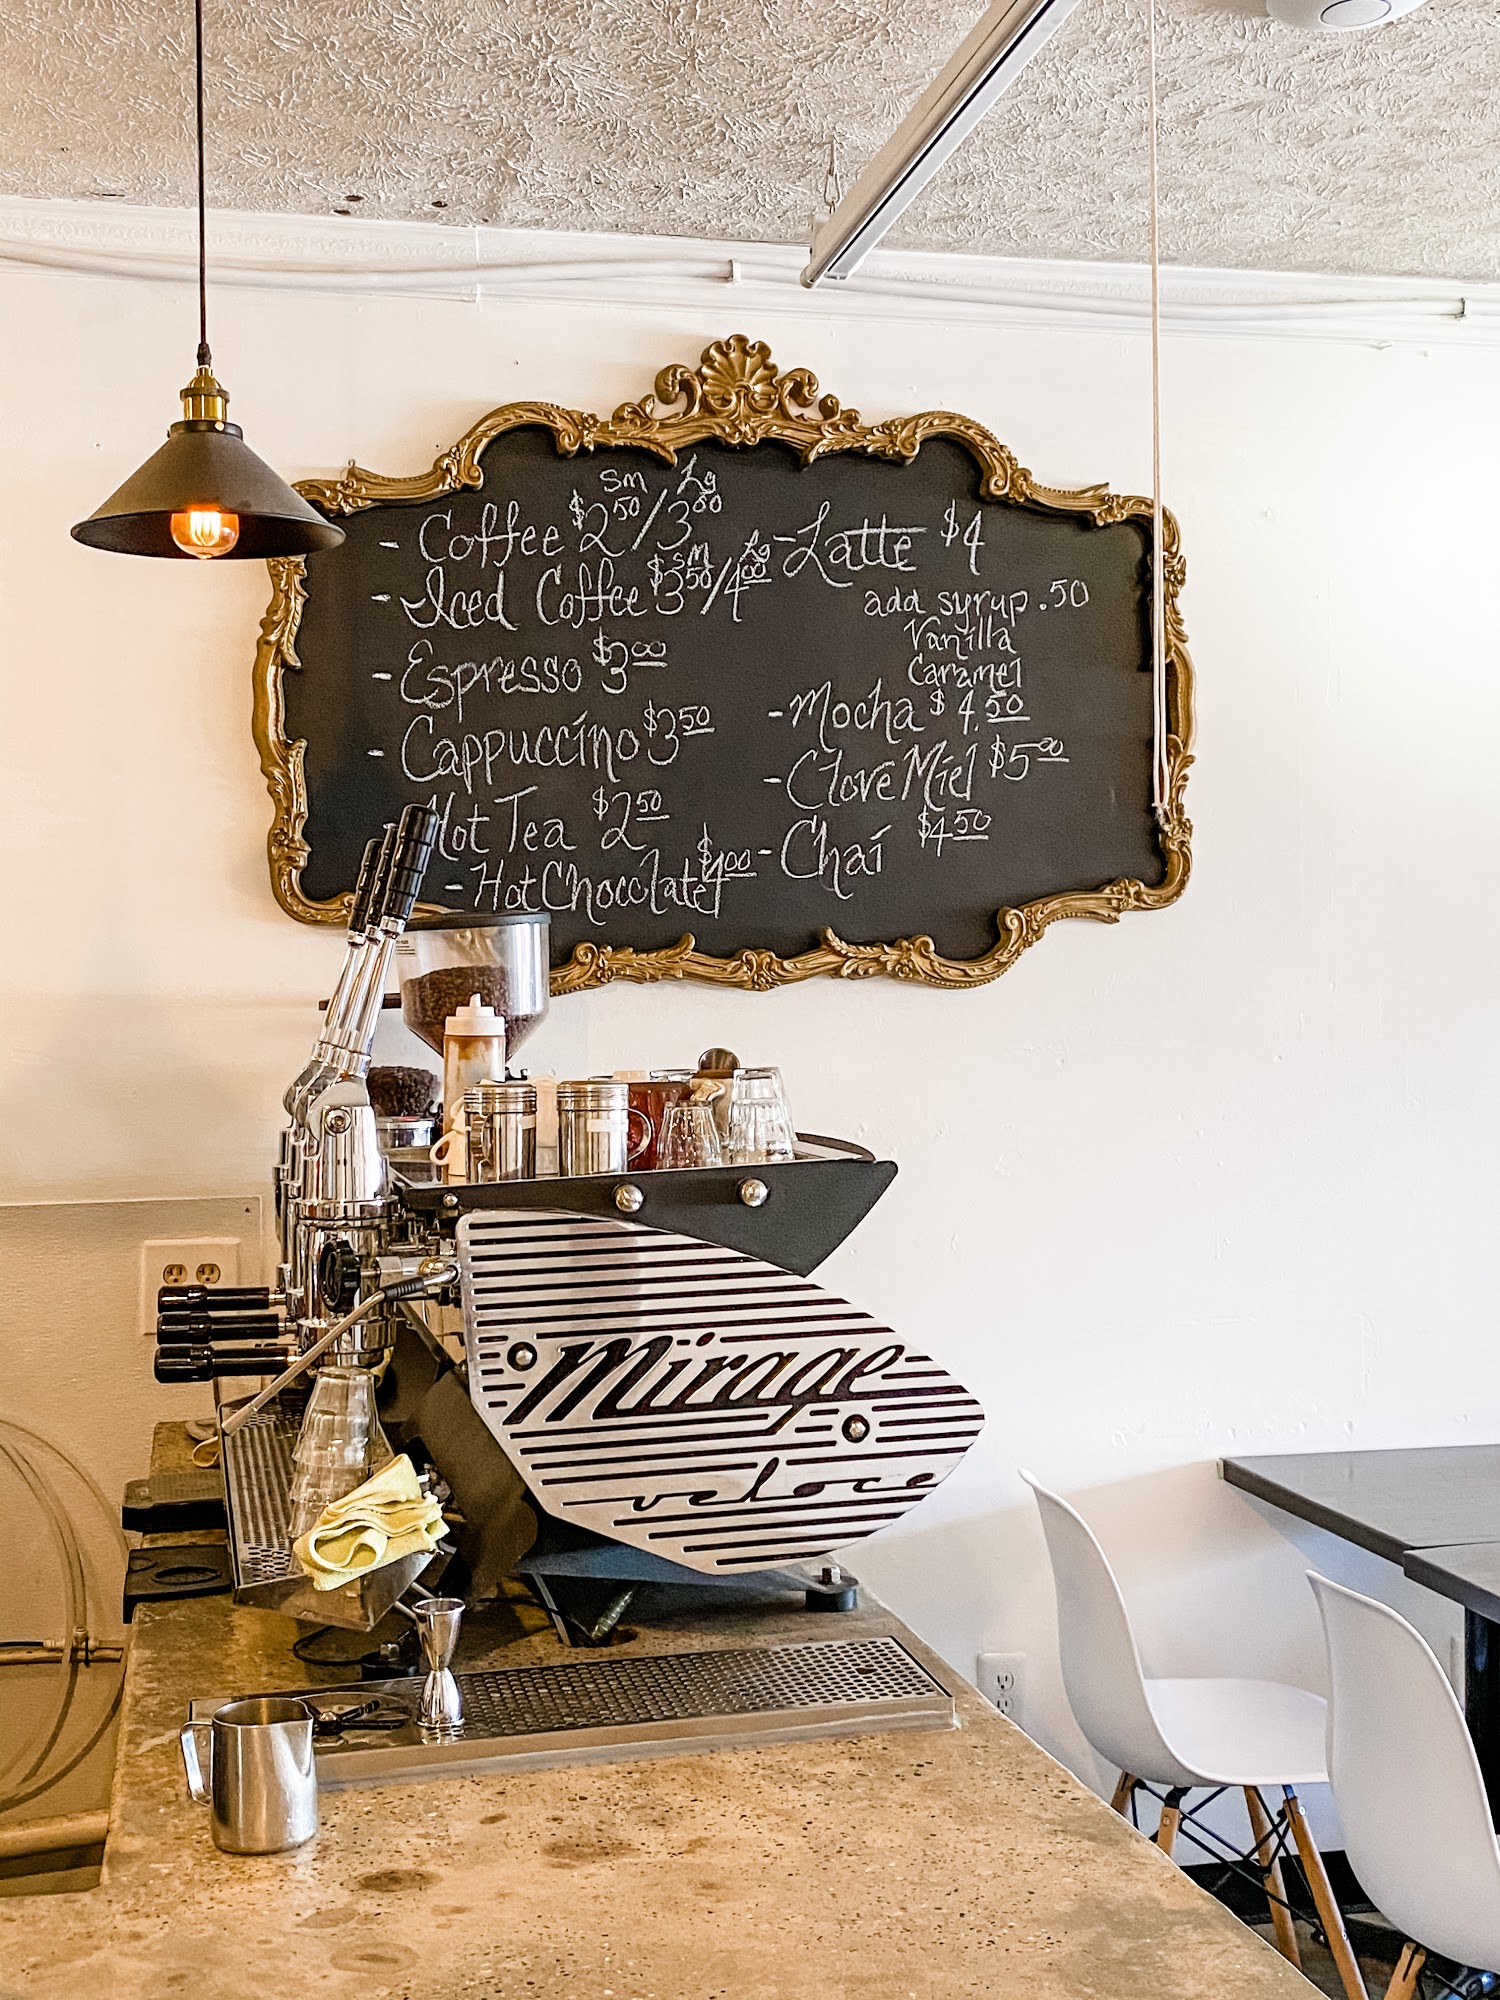 sm Lg
- Coffee $2 50/3 00
sm Lg
- Iced Coffee $3 50/4 00
- Espresso $3 00
- Cappuccino $3 50
Hot Tea $2 50
- Hot Chocolate $4 00
- Latte $4
add syrup .50
Vanilla
Caramel
- Mocha $4.50
- Clove Miel $5 00
- Chai $4 50
Mirage
veloce